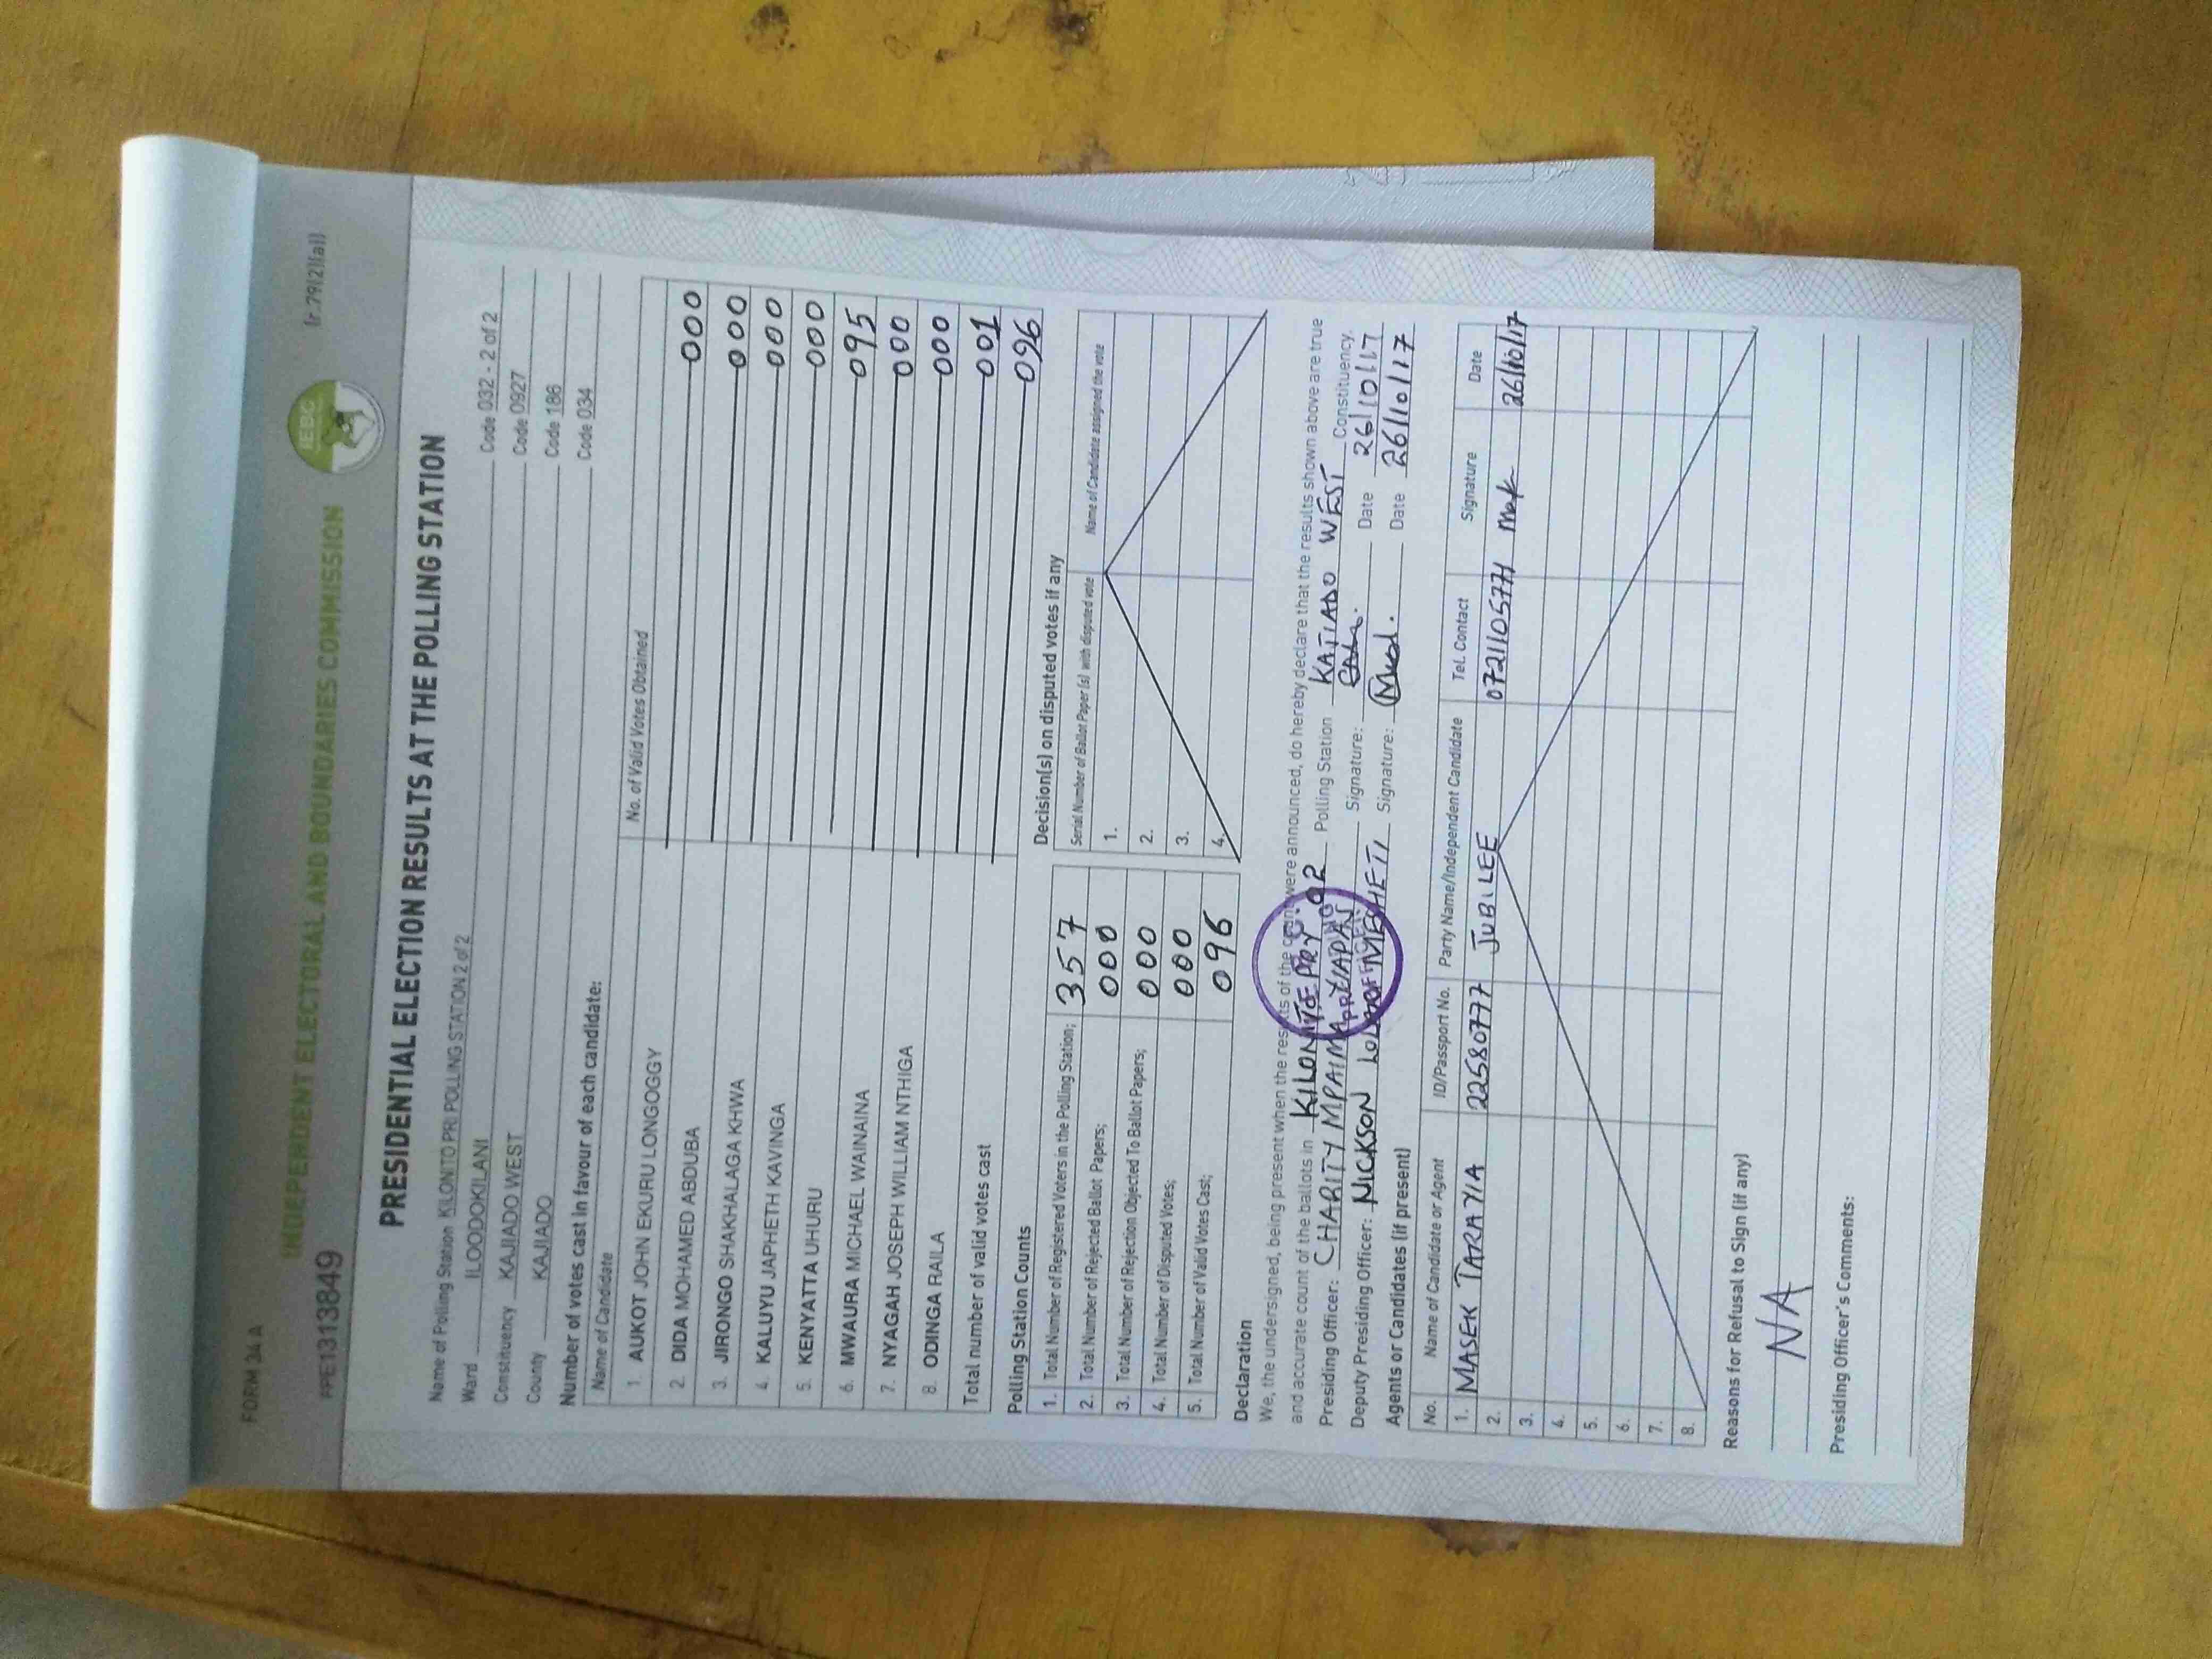 FORM 34 A
(r.79(2)(a))
INDEPENDENT ELECTORAL AND BOUNDARIES COMMISSION
IEBC
PE1313849
PRESIDENTIAL ELECTION RESULTS AT THE POLLING STATION
Name of Polling Station KILONITO PRI POLLING STATION 2 of 2 Code 032 - 2 of 2
Ward ILOODOKILANI Code 0927
Constituency KAJIADO WEST Code 186
County KAJIADO Code 034
Number of votes cast in favour of each candidate:
Name of Candidate No. of Valid Votes Obtained
1. AUKOT JOHN EKURU LONGOGGY 000
2. DIDA MOHAMED ABDUBA 000
3. JIRONGO SHAKHALAGA KHWA 000
4. KALUYU JAPHETH KAVINGA 000
5. KENYATTA UHURU 095
6. MWAURA MICHAEL WAINAINA 000
7. NYAGAH JOSEPH WILLIAM NTHIGA 000
8. ODINGA RAILA 001
Total number of valid votes cast 096
Polling Station Counts
1. Total Number of Registered Voters in the Polling Station; 357
2. Total Number of Rejected Ballot Papers; 000
3. Total Number of Rejection Objected To Ballot Papers; 000
4. Total Number of Disputed Votes; 000
5. Total Number of Valid Votes Cast; 096
Decision(s) on disputed votes if any
Serial Number of Ballot Paper (s) with disputed vote Name of Candidate assigned the vote
1.
2.
3.
4.
Declaration
We, the undersigned, being present when the results of the count were announced, do hereby declare that the results shown above are true
and accurate count of the ballots in KILONITO PRY 02 Polling Station KAJIADO WEST Constituency.
Presiding Officer: CHARITY MPAIMA YIAPAN Signature: Date 26/10/17
Deputy Presiding Officer: NICKSON Signature: Date 26/10/17
PRESIDING
OFFICER
Agents or Candidates (if present)
No. Name of Candidate or Agent ID/Passport No. Party Name/Independent Candidate Tel. Contact Signature Date
1. MASEK TARAYIA 22580777 JUBILEE 0721105771 Mak 26/10/17
2.
3.
4.
5.
6.
7.
8.
Reasons for Refusal to Sign (if any)
NA
Presiding Officer's Comments: